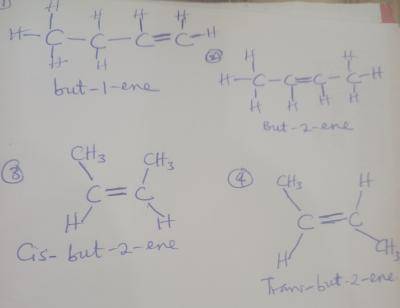 1)
H H H H
H-C-C-C=C-H
H H
but-1-ene
②
H H
H-C-C=C-C-H
H H H H
But-2-ene
③
CH₃ CH₃
C=C
H H
Cis-but-2-ene
④
CH₃ H
C=C
H CH₃
Trans-but-2-ene